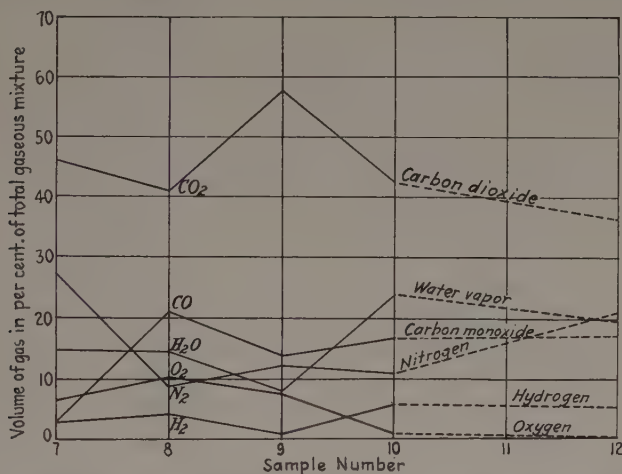 Volume of gas in per cent. of total gaseous mixture
70
60
50
40
30
20
10
0
CO2
Carbon dioxide
Water vapor
CO
Carbon monoxide
H2O
Nitrogen
O2
N2
Hydrogen
H2
Oxygen
7
8
9
10
11
12
Sample Number